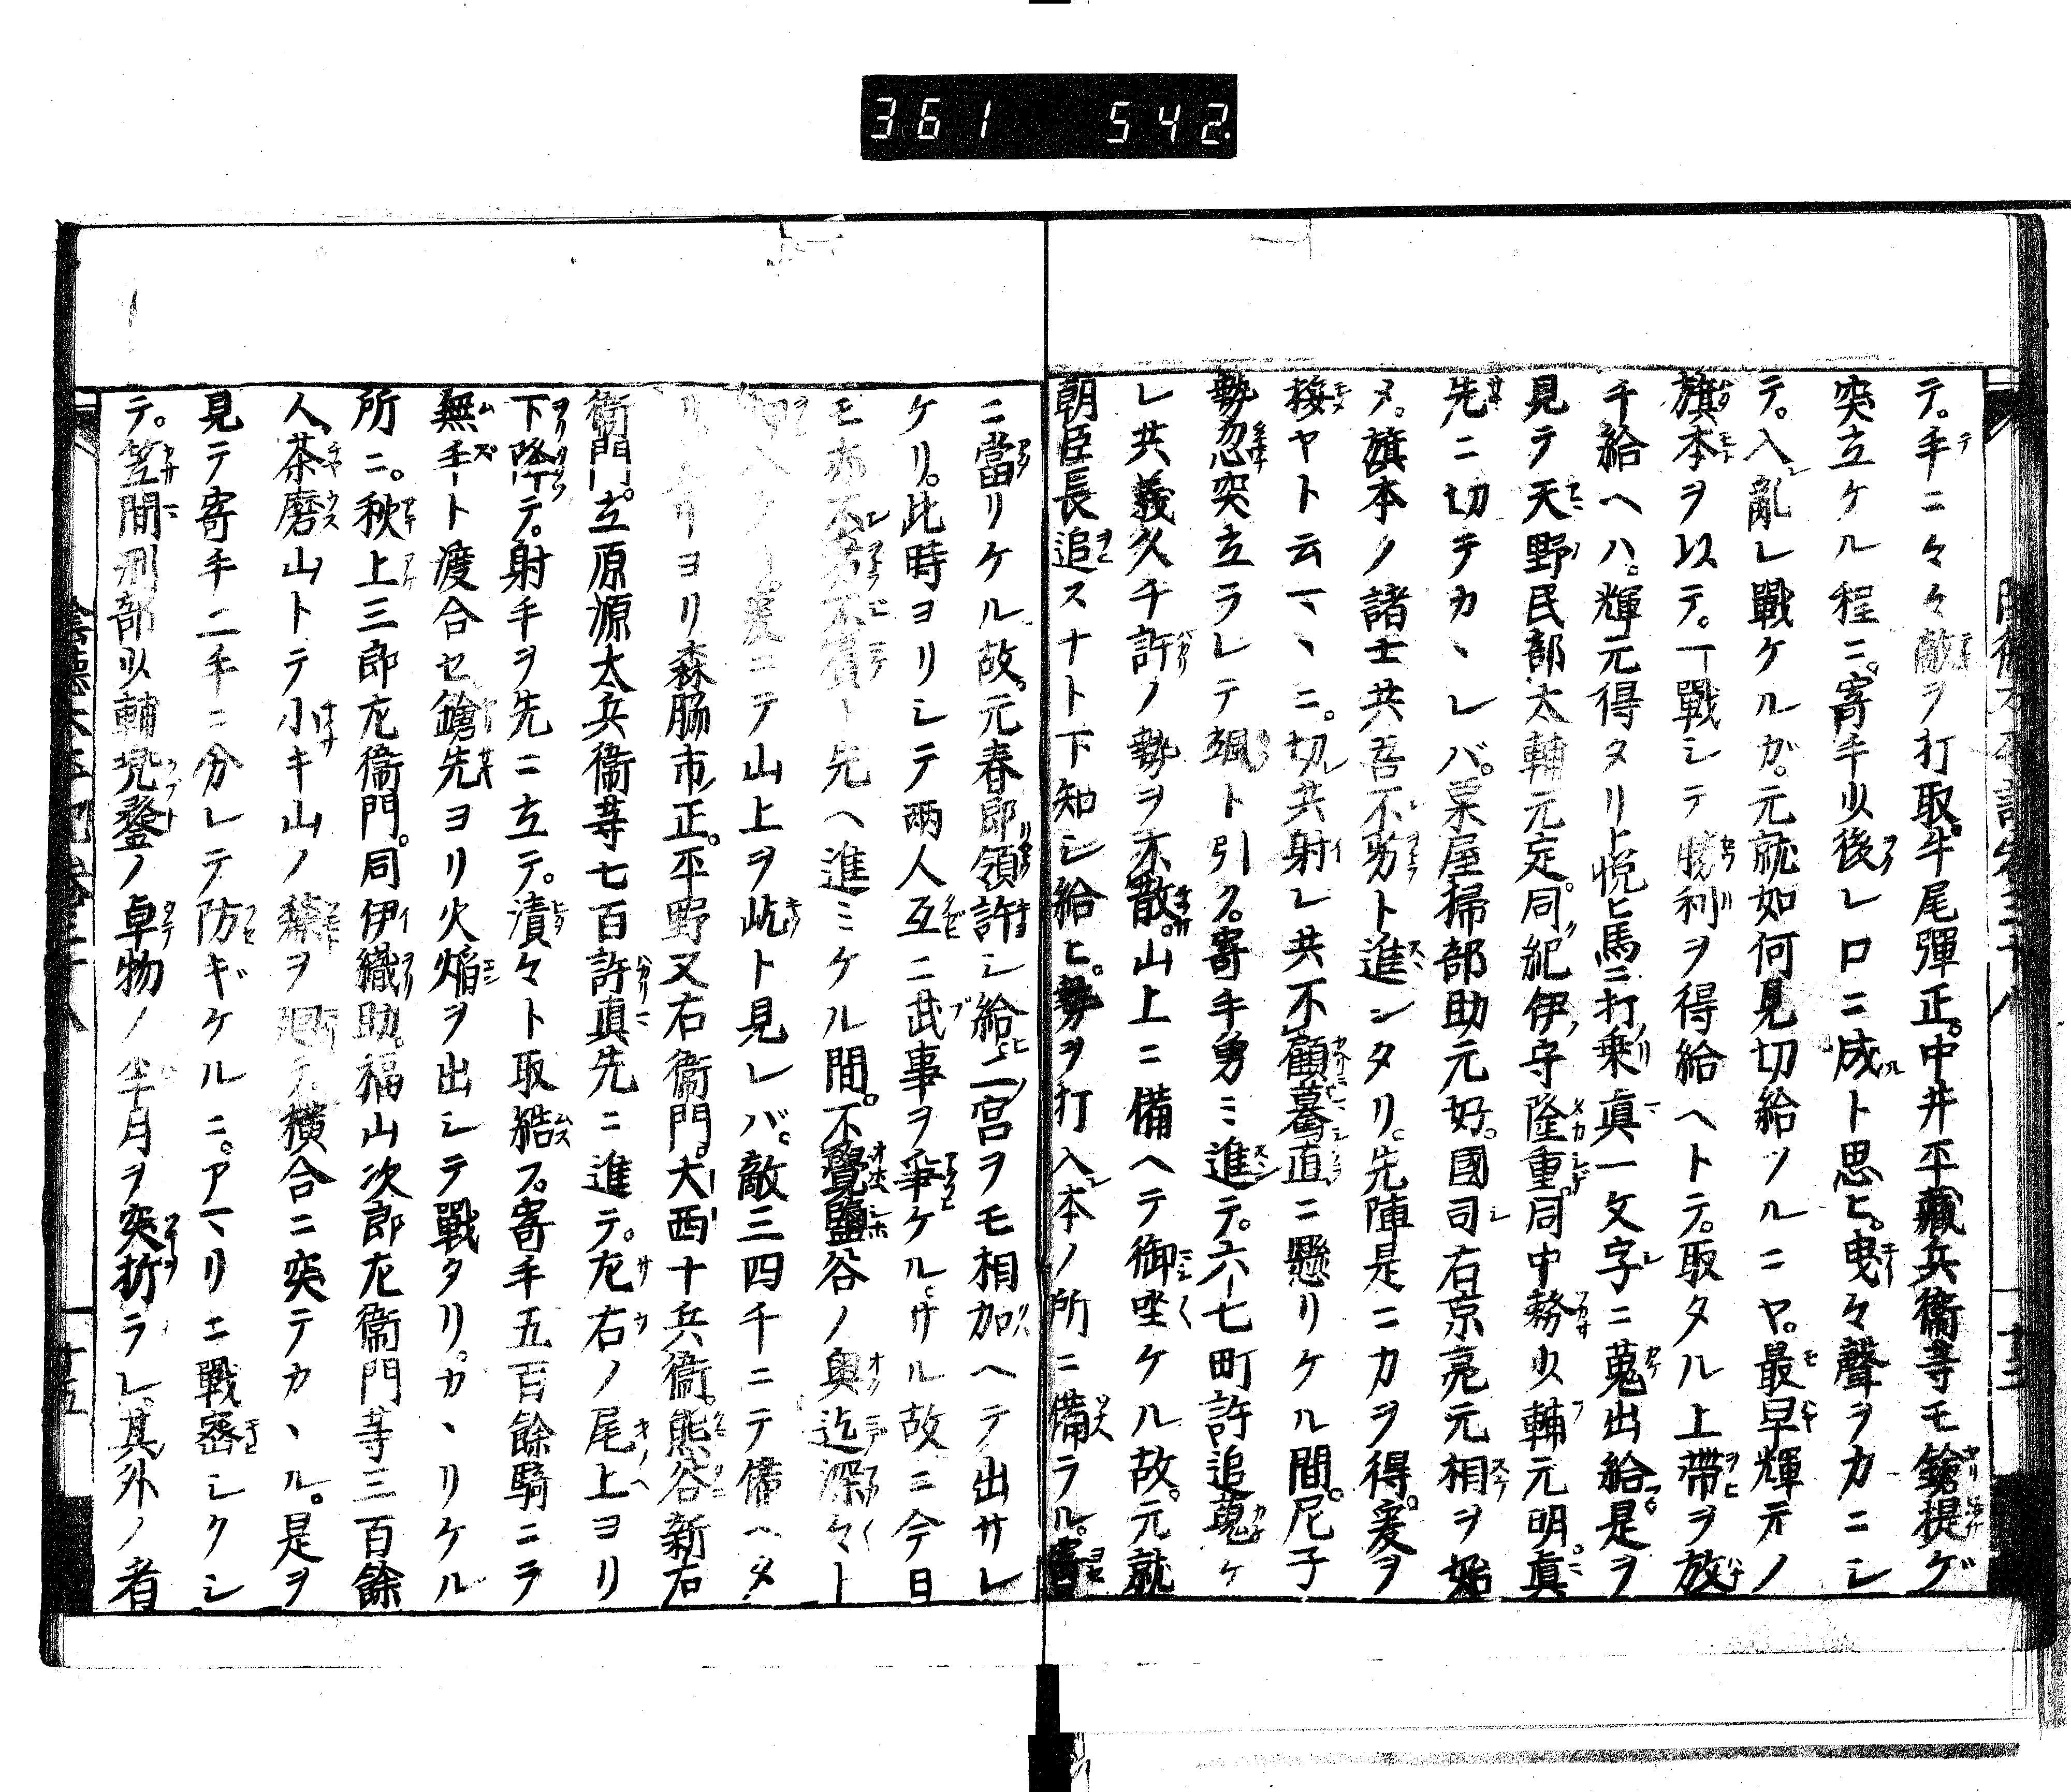 361 542.
テ。手ニ々々敵ヲ打取。牛尾彈正。中井平藏兵衞等モ鎗提ゲ
突立ケル程ニ。寄手少後レ口ニ成ト思ヒ。曳々聲ヲカニシ
テ。入亂レ戰ケルガ。元就如何見切給ツルニヤ。最早輝元ノ
旗本ヲ以テ。一戰シテ勝利ヲ得給ヘトテ。取タル上帶ヲ放
チ給ヘハ。輝元得タリト悦ヒ馬ニ打乘眞一文字ニ蒐出給是ヲ
見テ天野民部太輔元定。同紀伊守隆重。同中務少輔元明。眞
先ニ切テカヽレバ。粟屋掃部助元好。國司右京亮元相ヲ始
メ。旗本ノ諸士共吾不劣ト進シタリ。先陣是ニカヲ得。爰ヲ
ヤト云ママニ。切共射レ共不顧驀直ニ懸リケル間。尼子
勢忽突立ラレテ颯ト引ク。寄手勇ミ進テ。六七町許追蒐ケ
レ共義久千許ノ勢ヲ不散。山上ニ備ヘテ御坐ケル故。元就
朝臣長追スナト下知シ給ヒ。勢ヲ打入本ノ所ニ備ラル。
ニ當リケル故。元春郎領許シ給ヒ二宮ヲモ相加ヘテ出サレ
ケリ。此時ヨリシテ兩人互ニ武事ヲ爭ケル。サル故ニ今日
モ亦不劣不負ト先ヘ進ミケル間。不覺鹽谷ノ奥迄深々ト
入 爰ニテ山上ヲ屹ト見レバ。敵三四千ニテ備ヘタ
リ ヨリ森脇市正。平野又右衞門。大西十兵衞。熊谷新右
衞門。立原源太兵衞等七百許眞先ニ進テ。左右ノ尾上ヨリ
下降テ。射手ヲ先ニ立テ。漬々ト取縚ス。寄手五百餘騎ニテ
無手ト渡合セ鎗先ヨリ火焔ヲ出シテ戰タリ。カヽリケル
所ニ。秋上三郎左衞門。同伊織助。福山次郎左衞門等三百餘
人茶磨山トテ小キ山ノ ヲ廻テ横合ニ突テカヽル。是ヲ
見テ寄手二手ニ分レテ防ギケルニ。アマリニ戰密シクシ
テ。笠間刑部少輔兜鍪ノ卓物ノ半月ヲ突折ラレ。其外ノ者